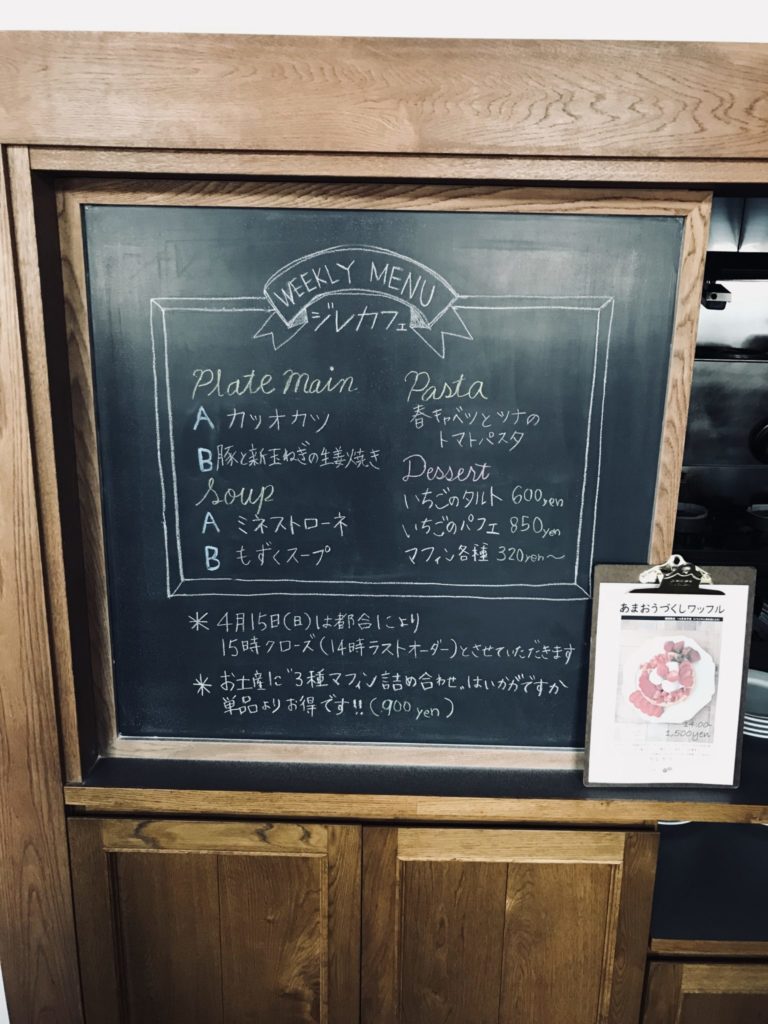 WEEKLY MENU
ジレカフェ
Plate Main
A カツオカツ
B 豚と新玉ねぎの生姜焼き
Soup
A ミネストローネ
B もずくスープ
Pasta
春キャベツとツナの
トマトパスタ
Dessert
いちごのタルト 600yen
いちごのパフェ 850yen
マフィン各種 320yen〜
＊ 4月15日(日)は都合により
15時クローズ(14時ラストオーダー)とさせていただきます
＊ お土産に"3種マフィン詰め合わせ"はいかがですか
単品よりお得です!!(900yen)
あまおうづくしワッフル
14:00-
1,500yen